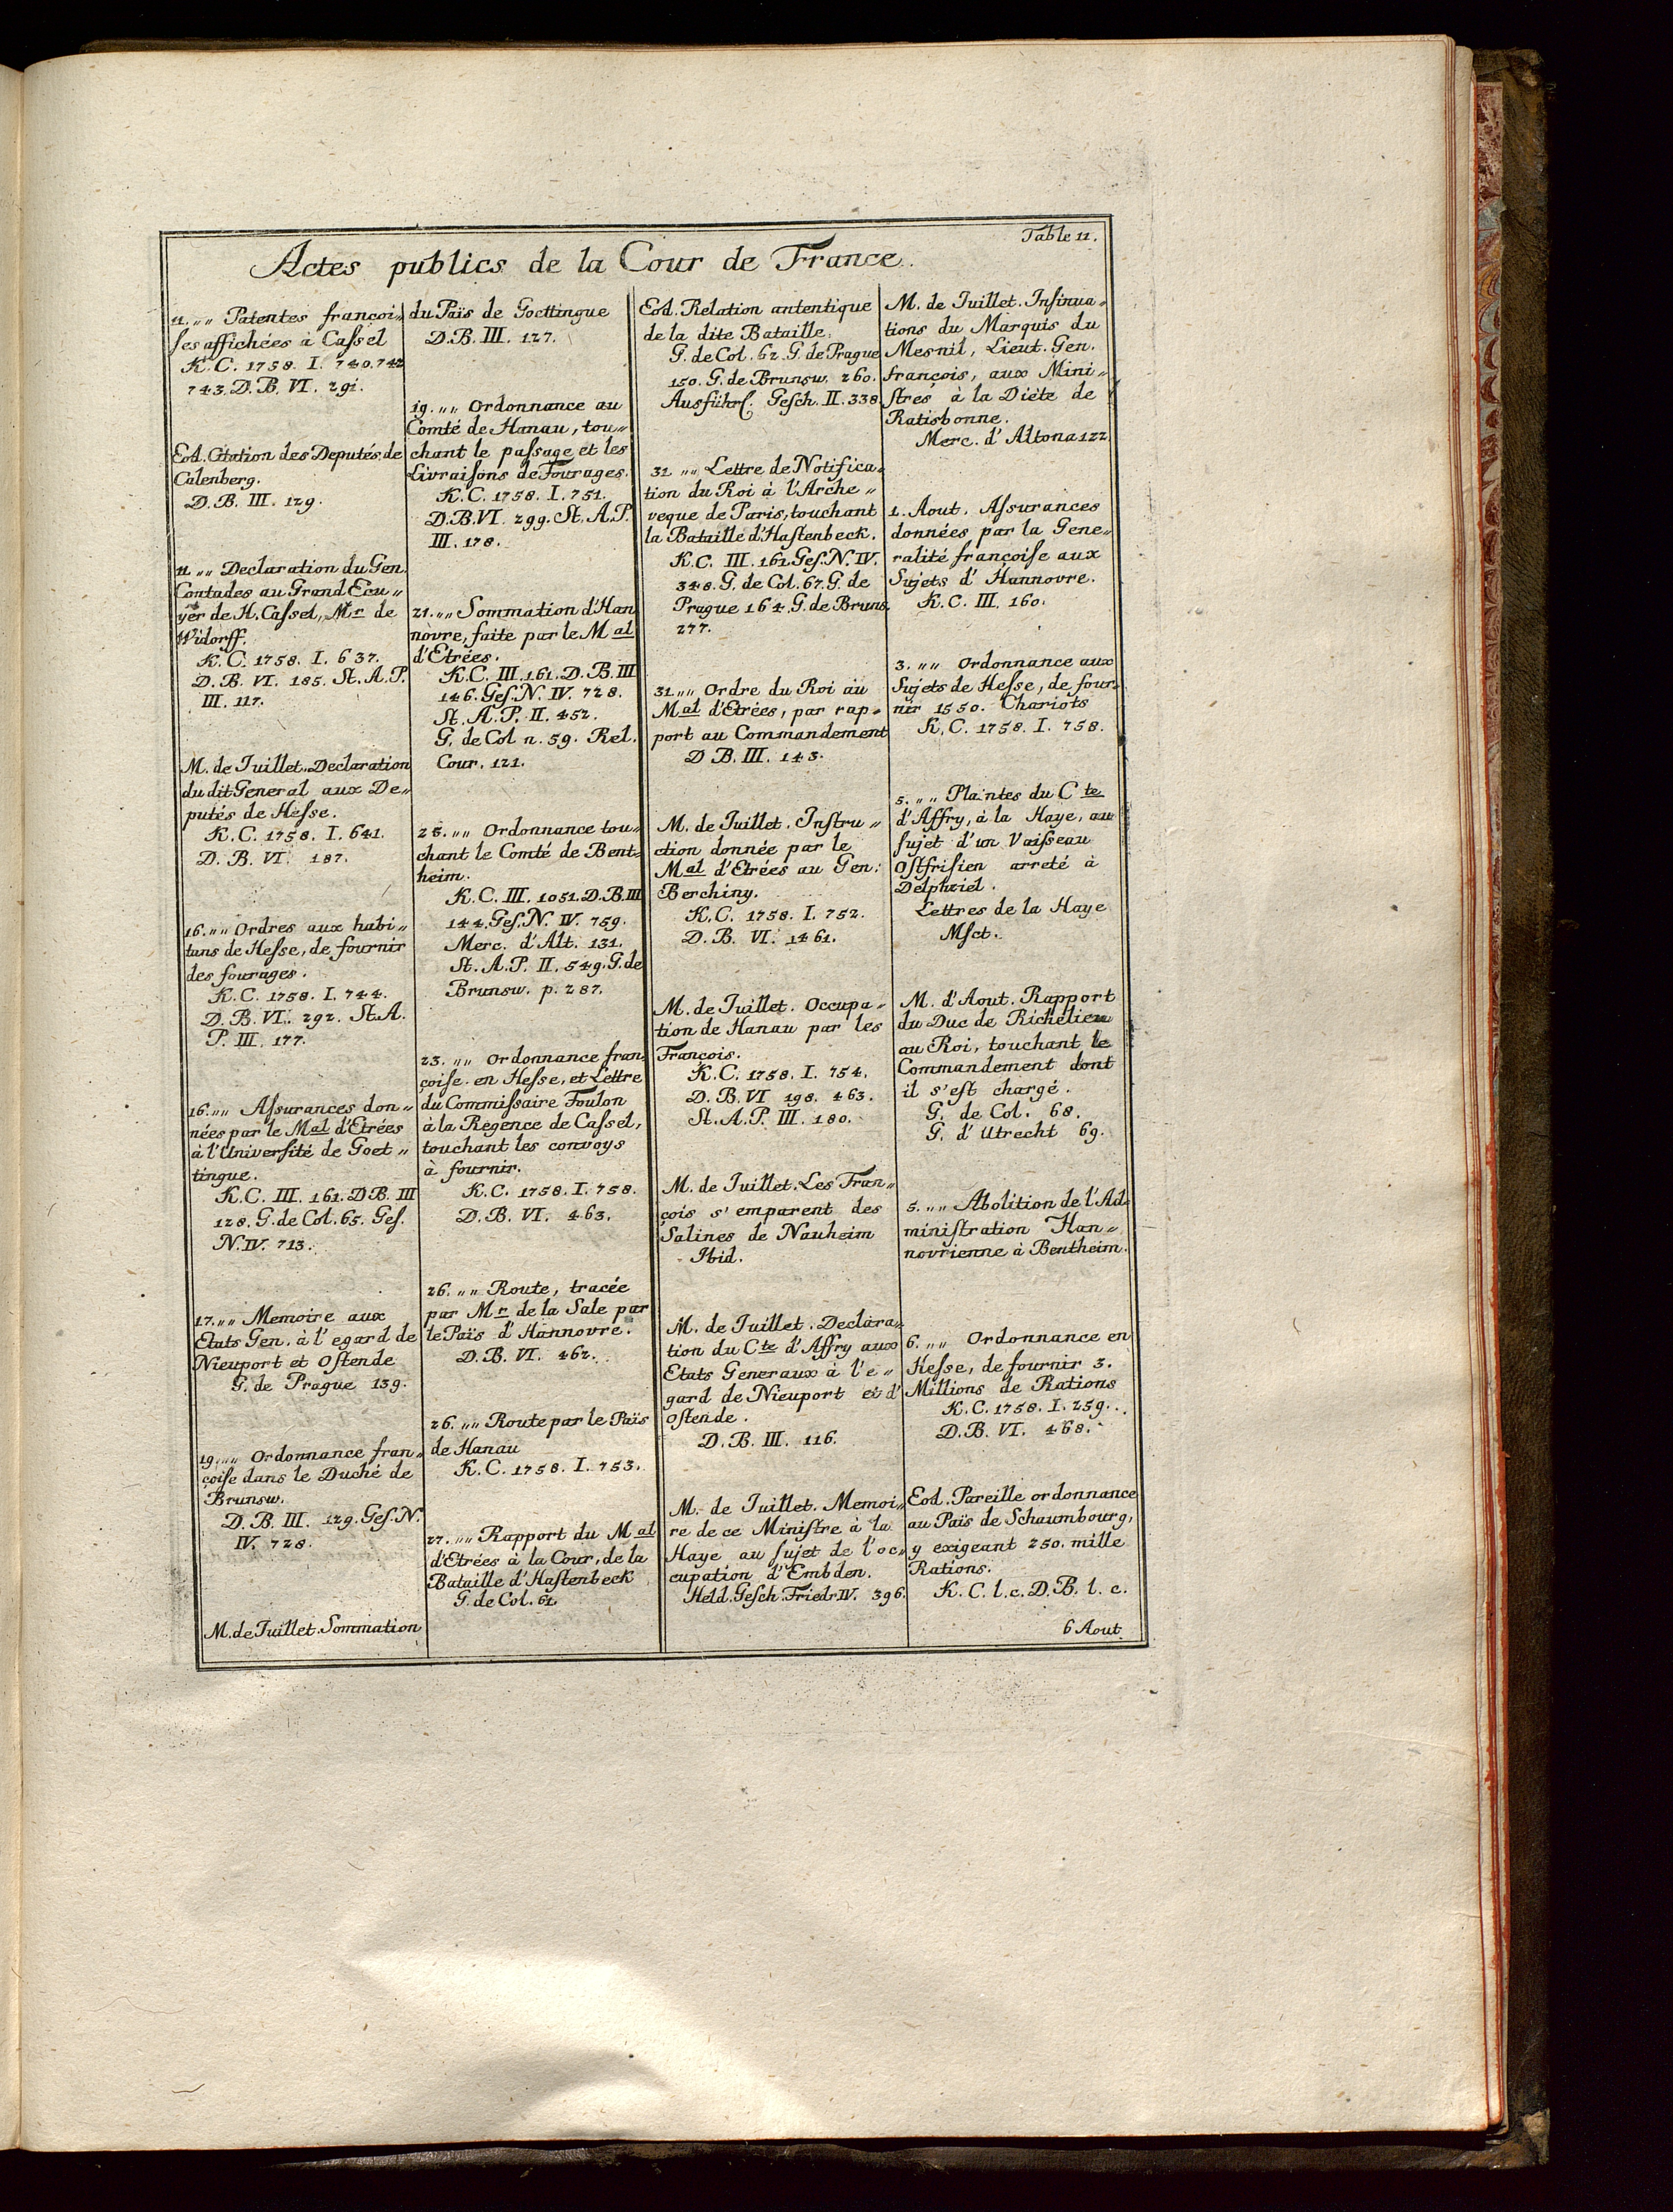 Table 11.
Actes publics de la Cour de France.
11. „„ Patentes françoi„
ſes affichées à Caſsel
K. C. 1758. I. 740. 742
743. D. B. VI. 291.
Eod. Citation des Deputés de
Calenberg.
D. B. III. 129.
11. „„ Declaration du Gen.
Contades au Grand Ecu„
yer de H. Caſsel, Mr de
Widorff.
K. C. 1758. I. 637.
D. B. VI. 185. St. A. P.
III. 117.
M. de Juillet. Declaration
du dit General aux De„
putés de Heſse.
K. C. 1758. I. 641.
D. B. VI. 187.
16. „„ Ordres aux habi„
tans de Heſse, de fournir
des fourages.
K. C. 1758. I. 744.
D. B. VI. 292. St. A.
P. III. 177.
16. „„ Aſsurances don„
nées par le Mal d'Etrées
à l'Univerſité de Goet„
tingue.
K. C. III. 161. D. B. III
128. G. de Col. 65. Geſ.
N. IV. 713.
17. „„ Memoire aux
Etats Gen. à l'egard de
Nieuport et Oſtende
G. de Prague 139.
19. „„ Ordonnance fran„
çoiſe dans le Duché de
Brunsw.
D. B. III. 129. Geſ. N.
IV. 728.
M. de Juillet. Sommation
du Païs de Goettingue
D. B. III. 127.
19. „„ Ordonnance au
Comté de Hanau, tou„
chant le paſsage et les
Livraiſons de Fourages.
K. C. 1758. I. 751.
D. B. VI. 299. St. A. P.
III. 178.
21. „„ Sommation d'Han
novre, faite par le Mal
d'Etrées.
K. C. III. 161. D. B. III
146. Geſ. N. IV. 728.
St. A. P. II. 452.
G. de Col n. 59. Rel.
Cour. 121.
25. „„ Ordonnance tou„
chant le Comté de Bent„
heim.
K. C. III. 1051. D. B. III
144. Geſ. N. IV. 759.
Merc. d'Alt. 131.
St. A. P. II. 549. G. de
Brunsw. p. 287.
23. „„ Ordonnance fran„
çoiſe en Heſse, et Lettre
du Commiſsaire Foulon
à la Regence de Caſsel,
touchant les convoys
à fournir.
K. C. 1758. I. 758.
D. B. VI. 463.
26. „„ Route, tracée
par Mr de la Sale par
le Païs d'Hannovre.
D. B. VI. 462.
26. „„ Route par le Païs
de Hanau
K. C. 1758. I. 753.
27. „„ Rapport du Mal
d'Etrées à la Cour, de la
Bataille d'Haſtenbeck
G. de Col. 61.
Eod. Relation antentique
de la dite Bataille.
G. de Col. 62. G. de Prague
150. G. de Brunsw. 260.
Ausführl. Geſch. II. 338.
31 „„ Lettre de Notifica„
tion du Roi à l'Arche„
veque de Paris, touchant
la Bataille d'Haſtenbeck.
K. C. III. 161. Geſ. N. IV.
348. G. de Col. 67. G. de
Prague 164. G. de Bruns.
277.
31 „„ Ordre du Roi au
Mal d'Etrées, par rap„
port au Commandement
D B. III. 143.
M. de Juillet. Inſtru„
ction donnée par le
Mal d'Etrées au Gen:
Berchiny.
K. C. 1758. I. 752.
D. B. VI. 1461.
M. de Juillet. Occupa„
tion de Hanau par les
François.
K. C. 1758. I. 754.
D. B. VI 198. 463.
St. A. P. III. 180.
M. de Juillet. Les Fran„
çois s'emparent des
Salines de Nauheim
Ibid.
M. de Juillet. Declara„
tion du Cte d'Affry aux
Etats Generaux à l'e„
gard de Nieuport et d'
Oſtende.
D. B. III. 116.
M. de Juillet. Memoi„
re de ce Miniſtre à la
Haye au ſujet de l'oc„
cupation d'Embden.
Held. Geſch. Friedr. IV. 396.
M. de Juillet. Inſinua„
tions du Marquis du
Mesnil, Lieut. Gen.
françois, aux Mini„
ſtres à la Diéte de
Ratisbonne.
Merc. d'Altona 122.
1. Aout. Aſsurances
données par la Gene„
ralité françoiſe aux
Sujets d'Hannovre.
K. C. III. 160.
3. „„ Ordonnance aux
Sujets de Heſse, de four„
nir 1550. Chariots
K. C. 1758. I. 758.
5. „„ Plaintes du Cte
d'Affry, à la Haye, au
ſujet d'un Vaiſseau
Oſtfriſien arreté à
Delphziel.
Lettres de la Haye
Mſct.
M. d'Aout. Rapport
du Duc de Richelieu
au Roi, touchant le
Commandement dont
il s'eſt chargé.
G. de Col. 68.
G. d'Utrecht 69.
5. „„ Abolition de l'Ad„
miniſtration Han„
novrienne à Bentheim.
6. „„ Ordonnance en
Heſse, de fournir 3.
Millions de Rations
K. C. 1758. I. 259.
D. B. VI. 468.
Eod. Pareille ordonnance
au Païs de Schaumbourg,
y exigeant 250. mille
Rations.
K. C. l. c. D. B. l. c.
6 Aout